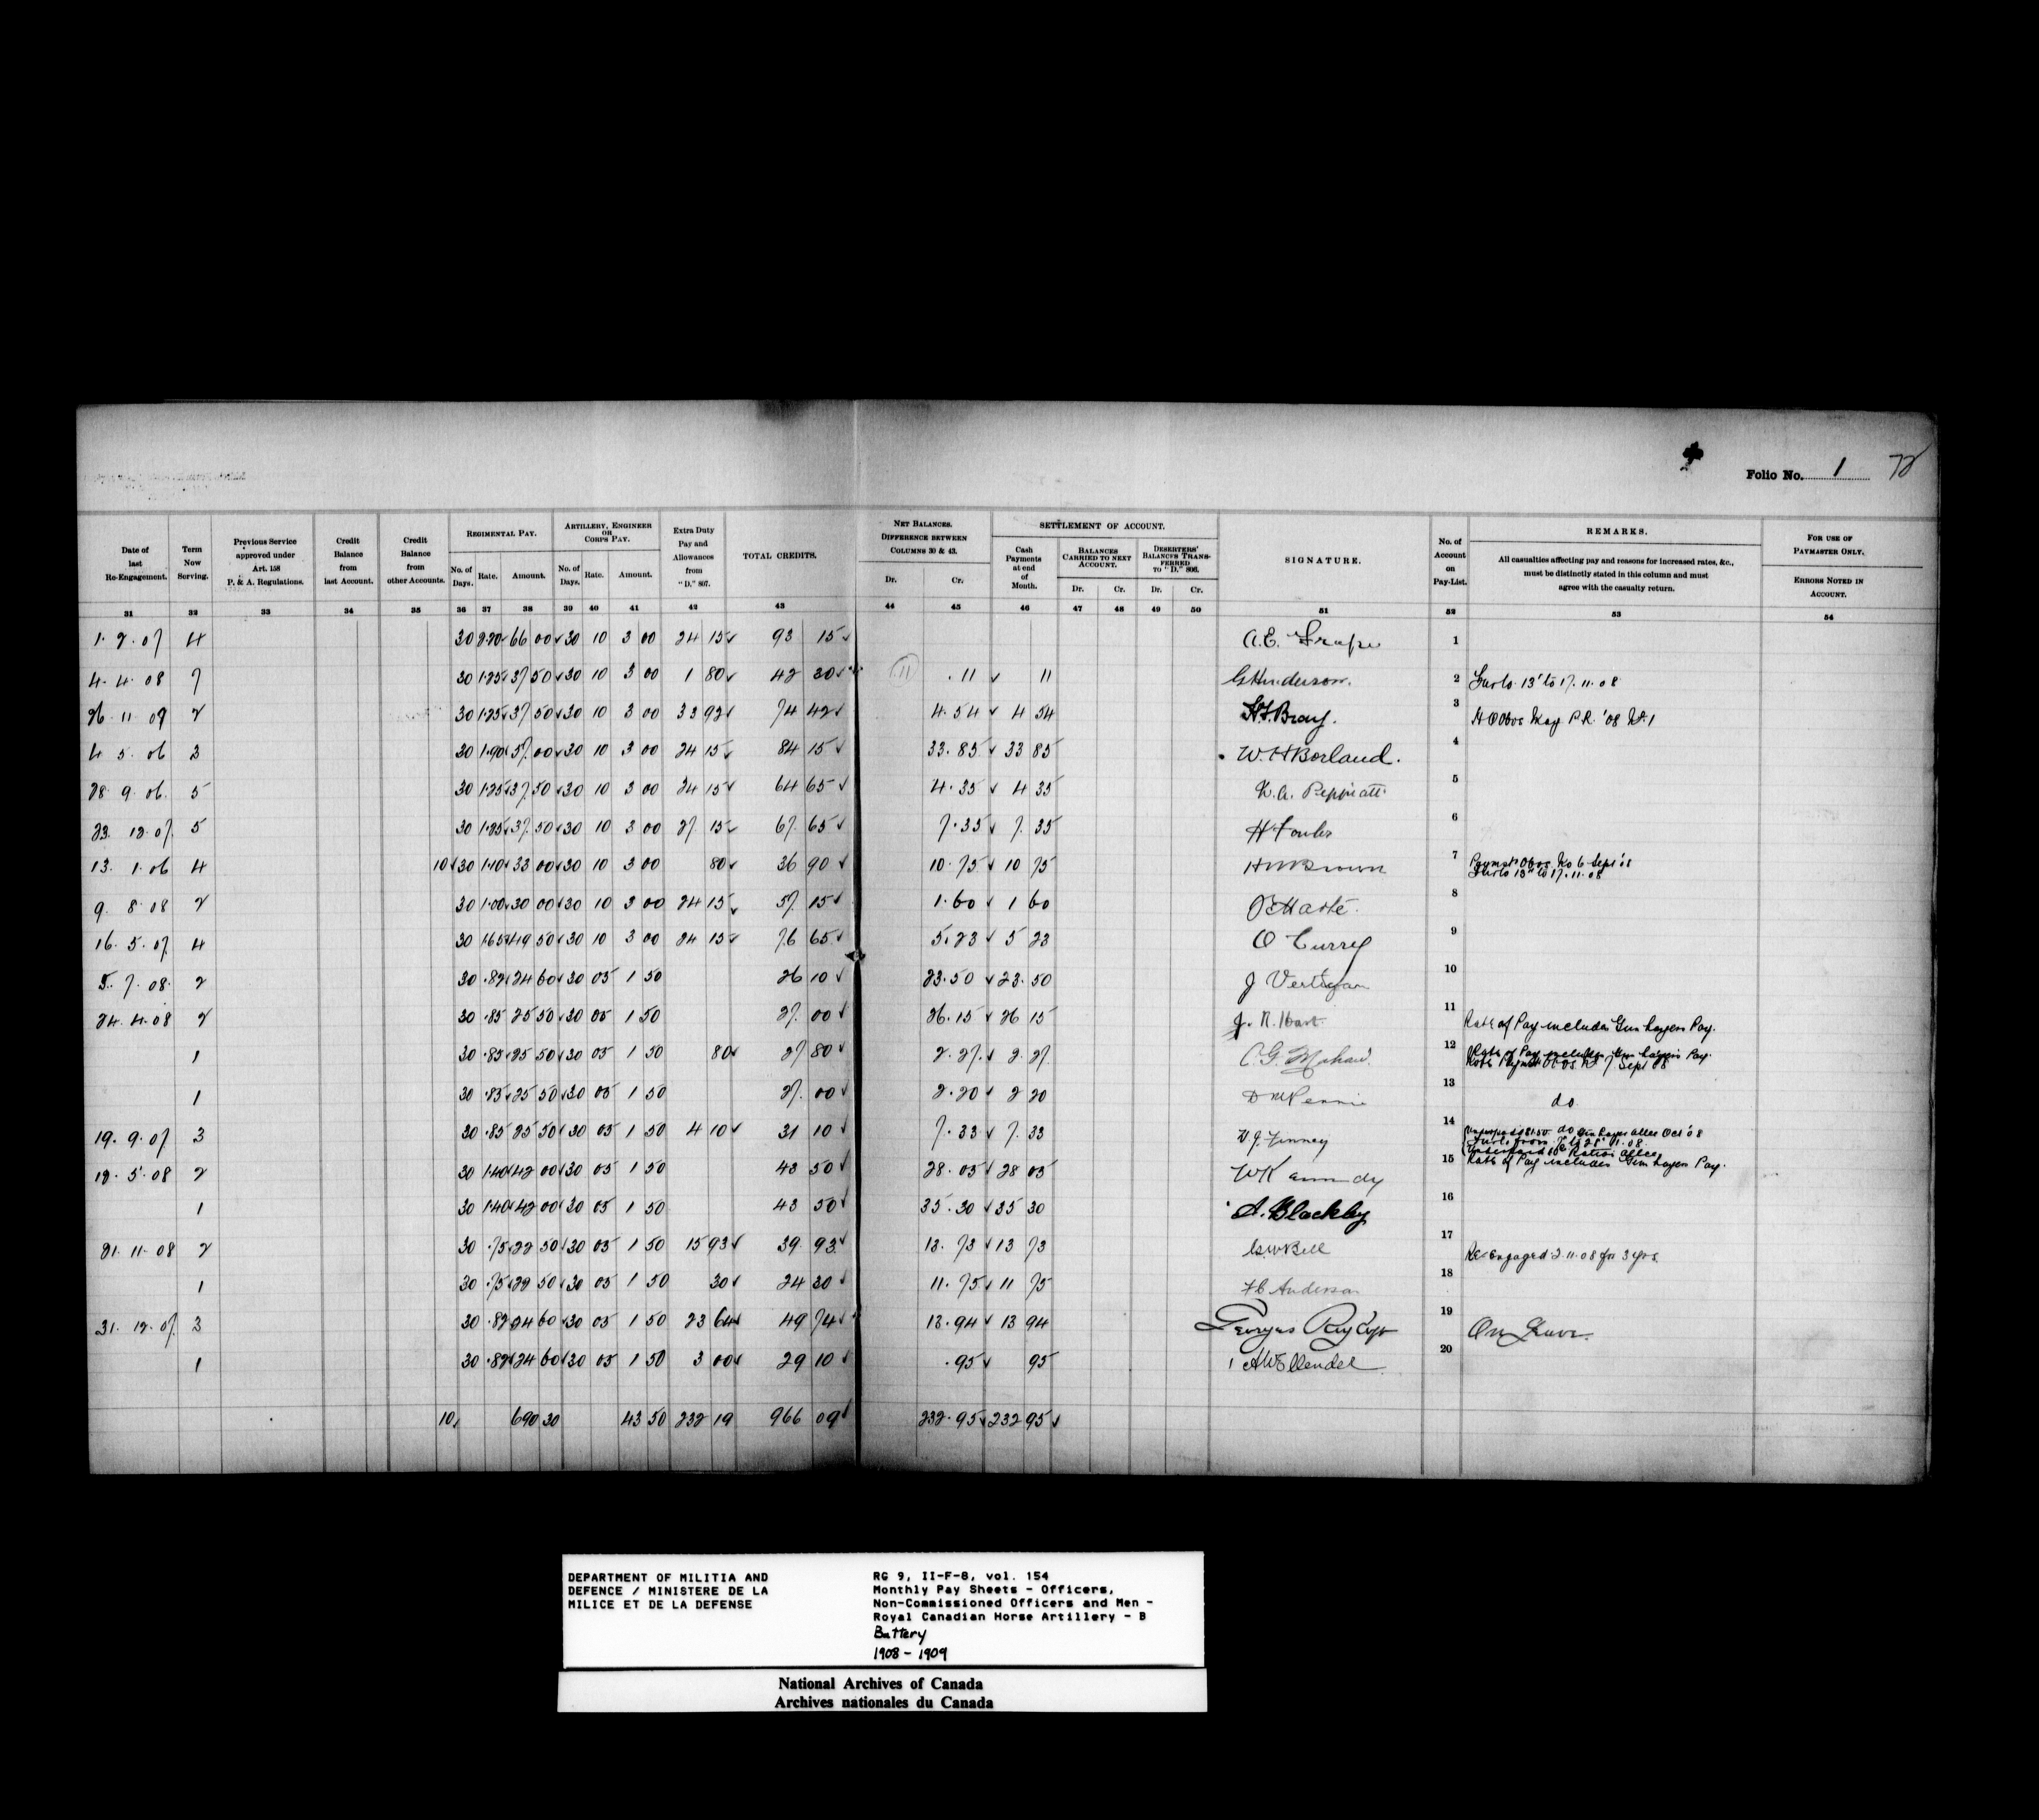 Folio No. 1 72
Date of last Re-Engagement. Term Now Serving. Previous Service approved under Art. 158 P. & A. Regulations. Credit Balance from last Account. Credit Balance from other Accounts. REGIMENTAL PAY. No. of Days. Rate. Amount. ARTILLERY, ENGINEER OR CORPS PAY. No. of Days. Rate. Amount. Extra Duty Pay and Allowances from "D." 807. TOTAL CREDITS. NET BALANCES. DIFFERENCE BETWEEN COLUMNS 30 & 43. Dr. Cr. SETTLEMENT OF ACCOUNT. Cash Payments at end of Month. BALANCES CARRIED TO NEXT ACCOUNT. Dr. Cr. DESERTERS' BALANCES TRANSFERRED TO "D." 806. Dr. Cr. SIGNATURE. No. of Account on Pay-List. REMARKS. All casualties affecting pay and reasons for increased rates, &c., must be distinctly stated in this column and must agree with the casualty return. FOR USE OF PAYMASTER ONLY. ERRORS NOTED IN ACCOUNT.
31 32 33 34 35 36 37 38 39 40 41 42 43 44 45 46 47 48 49 50 51 52 53 54
1. 2. 07 4 30 2.20 66 00 30 10 3 00 24 15 93 15 A.E. 1
4. 4. 08 7 30 1.25 37 50 30 10 3 00 1 80 42 30 11 .11 11 G Henderson. 2 Furlo. 13 to 17. 11. 08
26 11 09 2 30 1.25 37 50 30 10 3 00 33 92 74 42 4.54 4 54 Bray. 3 H Q Obos May P.R. '08 No. 1
4 5. 06 3 30 1.90 57 00 30 10 3 00 24 15 84 15 33.85 33 85 W. H Borland. 4
28 9. 06. 5 30 1.25 37 50 30 10 3 00 24 15 64 65 4.35 4 35 Peppiatt 5
23. 12. 07. 5 30 1.25 37 50 30 10 3 00 27 15 67 65 7.35 7. 35 H Fowler 6
13. 1. 06 4 10 30 1.10 33 00 30 10 3 00 80 36 90 10.75 10 75 Brown 7 Paymstr Obos No 6 Sept '08
Furlo 13 to 17. 11. 08
9. 8. 08 2 30 1.00 30 00 30 10 3 00 24 15 57 15 1.60 1 60 8
16. 5. 07. 4 30 1.65 49 50 30 10 3 00 24 15 76 65 5.23 5 23 O Currey 9
5. 7. 08. 2 30 .82 24 60 30 05 1 50 26 10 23.50 23. 50 J 10
24. 4. 08 2 30 .85 25 50 30 05 1 50 27. 00 26.15 26 15 J. R. Hart 11 Rate of Pay includes Gun Layers Pay.
1 30 .85 25 50 30 05 1 50 80 27 80 2.27. 2. 27. C. G. 12 Rate of Pay includes Gun Layers Pay.
Paymstr Obos No 7 Sept 08
1 30 .85 25 50 30 05 1 50 27. 00 2.20 2 20 D 13 do
19. 9. 07 3 30 .85 25 50 30 05 1 50 4 10 31 10 7.33 7. 33 W. J. Finney 14 do Gun Layer allce Oct '08
12. 5. 08 2 30 1.40 42 00 30 05 1 50 43 50 28.05 28 05 W Kennedy 15 Rate of Pay includes Gun Layers Pay.
1 30 1.40 42 00 30 05 1 50 43 50 35.30 35 30 A. Blackby 16
21. 11. 08 2 30 .75 22 50 30 05 1 50 15 93 39. 93. 13. 73 13 73 G. W Bell 17 Re-engaged 2. 11. 08 for 3 yrs.
1 30 .75 22 50 30 05 1 50 30 24 30 11. 75 11 75 Anderson 18
31. 12. 07. 3 30 .82 24 60 30 05 1 50 23 64 49 74 13.94 13 94 Georges Raycroft 19 On
1 30 .82 24 60 30 05 1 50 3 00 29 10 .95 95 A W Ellendel 20
10 690 30 43 50 232 19 966 09 232.95 232 95
DEPARTMENT OF MILITIA AND
DEFENCE / MINISTERE DE LA
MILICE ET DE LA DEFENSE
RG 9, II-F-8, vol. 154
Monthly Pay Sheets - Officers,
Non-Commissioned Officers and Men -
Royal Canadian Horse Artillery - B
Battery
1908 - 1909
National Archives of Canada
Archives nationales du Canada